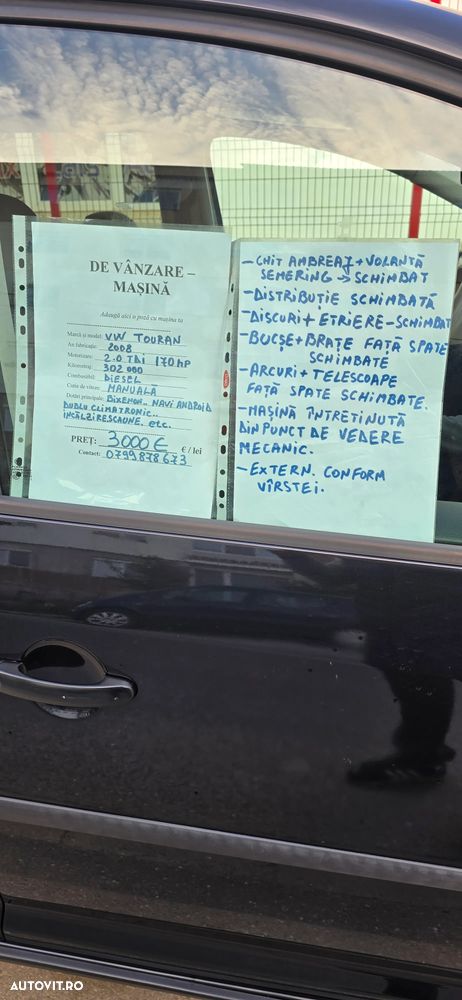 DE VÂNZARE –
MAȘINĂ
Adaugă aici o poză cu mașina ta
Marcă și model: VW TOURAN
An fabricație: 2008
Motorizare: 2.0 TDI 170HP
Kilometraj: 302 000
Combustibil: DIESEL
Cutie de viteze: MANUALĂ
Dotări principale: BIXENON.. NAVI ANDROID
DUBLU CLIMATRONIC..
INCĂLZIRE SCAUNE. etc.
PREȚ: 3000 € € / lei
Contact: 0799878673
- CHIT AMBREAJ + VOLANTĂ
SEMERING → SCHIMBAT
- DISTRIBUȚIE SCHIMBATĂ
- DISCURI + ETRIERE - SCHIMBAT
- BUCȘE + BRAȚE FAȚĂ SPATE
SCHIMBATE
- ARCURI + TELESCOAPE
FAȚĂ SPATE SCHIMBATE.
- MAȘINĂ ÎNTREȚINUTĂ
DIN PUNCT DE VEDERE
MECANIC.
- EXTERN. CONFORM
VÎRSTEI.
AUTOVIT.RO